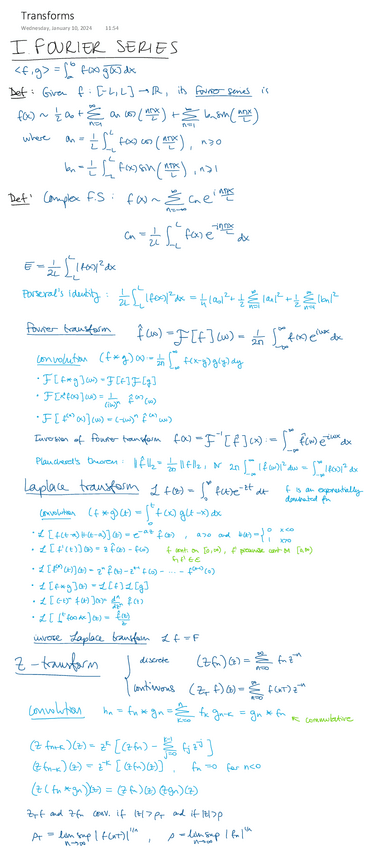 Transforms
Wednesday, January 10, 2024 11:54
I. FOURIER SERIES
<f,g> = ∫_a^b f(x) \overline{g(x)} dx
Def: Given f: [-L,L] → ℝ, its Fourier series is
f(x) ~ 1/2 a₀ + Σ_{n=1}^∞ aₙ cos(nπx/L) + Σ_{n=1}^∞ bₙ sin(nπx/L)
where aₙ = 1/L ∫_{-L}^L f(x) cos(nπx/L), n≥0
bₙ = 1/L ∫_{-L}^L f(x) sin(nπx/L), n≥1
Def: Complex F.S: f(x) ~ Σ_{n=-∞}^∞ cₙ e^{i nπx/L}
cₙ = 1/2L ∫_{-L}^L f(x) e^{-inπx/L} dx
E = 1/2L ∫_{-L}^L |f(x)|² dx
Parseval's Identity: 1/2L ∫_{-L}^L |f(x)|² dx = 1/4 |a₀|² + 1/2 Σ_{n=1}^∞ |aₙ|² + 1/2 Σ_{n=1}^∞ |bₙ|²
Fourier transform f̂(ω) = F[f](ω) = 1/2π ∫_{-∞}^∞ f(x) e^{iωx} dx
convolution (f*g)(x) = 1/2π ∫_{-∞}^∞ f(x-y) g(y) dy
• F[f*g](ω) = F[f] F[g]
• F[xⁿf(x)](ω) = 1/(i)ⁿ f̂⁽ⁿ⁾(ω)
• F[f⁽ⁿ⁾(x)](ω) = (-iω)ⁿ f̂(ω)
Inversion of Fourier transform f(x) = F⁻¹[f̂](x) := ∫_{-∞}^∞ f̂(ω) e^{-iωx} dω
Plancherel's theorem: ||f̂||₂ = 1/√2π ||f||₂, or 2π ∫_{-∞}^∞ |f̂(ω)|² dω = ∫_{-∞}^∞ |f(x)|² dx
Laplace transform L f(z) = ∫_0^∞ f(t) e^{-zt} dt f is an exponentially
dominated fn
convolution (f*g)(t) = ∫_0^t f(x) g(t-x) dx
• L[f(t-a)H(t-a)](z) = e^{-az} f̂(z), a>0 and H(x) = { 0 x<0
1 x>0
• L[f'(t)](z) = z f̂(z) - f(0) f cont. on [0,∞), f' piecewise cont on [0,∞)
• L[f⁽ⁿ⁾(t)](z) = zⁿ f̂(z) - zⁿ⁻¹ f(0) - ... - f⁽ⁿ⁻¹⁾(0)
• L[f*g](z) = L[f] L[g]
• L[(-t)ⁿ f(t)](z) = dⁿ/dzⁿ f̂(z)
• L[∫_0^t f(x) dx](z) = f̂(z)/z
inverse Laplace transform L f = F
Z-transform { discrete (Z fₙ)(z) = Σ_{n=0}^∞ fₙ z⁻ⁿ
continuous (Z_T f)(z) = Σ_{n=0}^∞ f(nT) z⁻ⁿ
Convolution hₙ = fₙ * gₙ = Σ_{k=0}^n f_k g_{n-k} = gₙ * fₙ
commutative
(Z f_{n+k})(z) = z^k [(Z fₙ) - Σ_{j=0}^{k-1} f_j z^{-j}]
(Z f_{n-k})(z) = z^{-k} [(Z fₙ)(z)], fₙ = 0 for n<0
(Z (fₙ * gₙ))(z) = (Z fₙ)(z) (Z gₙ)(z)
Z_T f and Z fₙ conv. if |z| > ρ_T and if |z| > ρ
ρ_T = lim sup_{n→∞} |f(nT)|^{1/n}, ρ = lim sup_{n→∞} |fₙ|^{1/n}